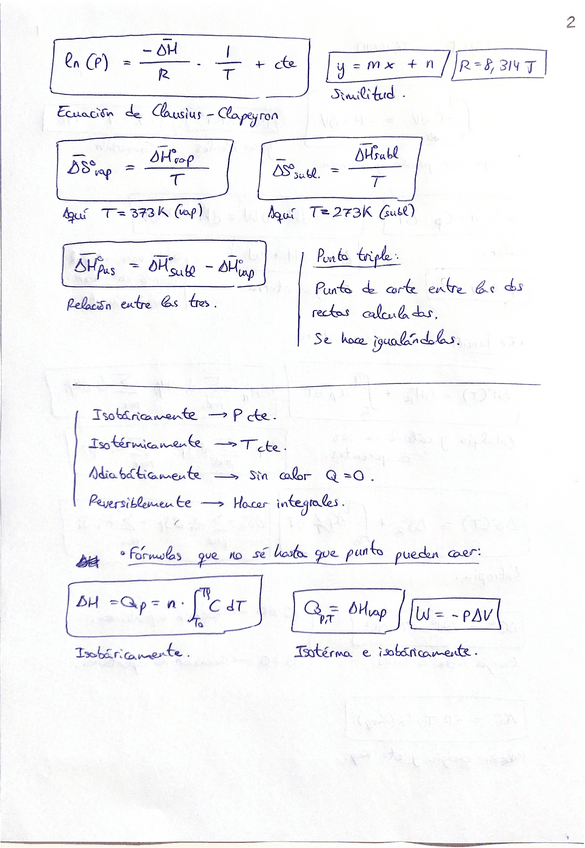 2
ln (P) = -ΔH̅ / R · 1 / T + cte
y = mx + n
R = 8,314 J
Similitud.
Ecuación de Clausius-Clapeyron
ΔS̅°vap = ΔH̅°vap / T
ΔS̅°subl. = ΔH̅°subl / T
Aquí T = 373K (vap)
Aquí T = 273K (subl)
ΔH̅°fus = ΔH̅°subl - ΔH̅vap
Relación entre las tres.
Punto triple:
Punto de corte entre las dos
rectas calculadas.
Se hace igualándolas.
Isobáricamente → P cte.
Isotérmicamente → T cte.
Adiabáticamente → Sin calor Q=0.
Reversiblemente → Hacer integrales.
• Fórmulas que no sé hasta que punto pueden caer:
ΔH = Qp = n · ∫ C dT
Isobáricamente.
Q P,T = ΔHvap
W = -PΔV
Isotérma e isobáricamente.